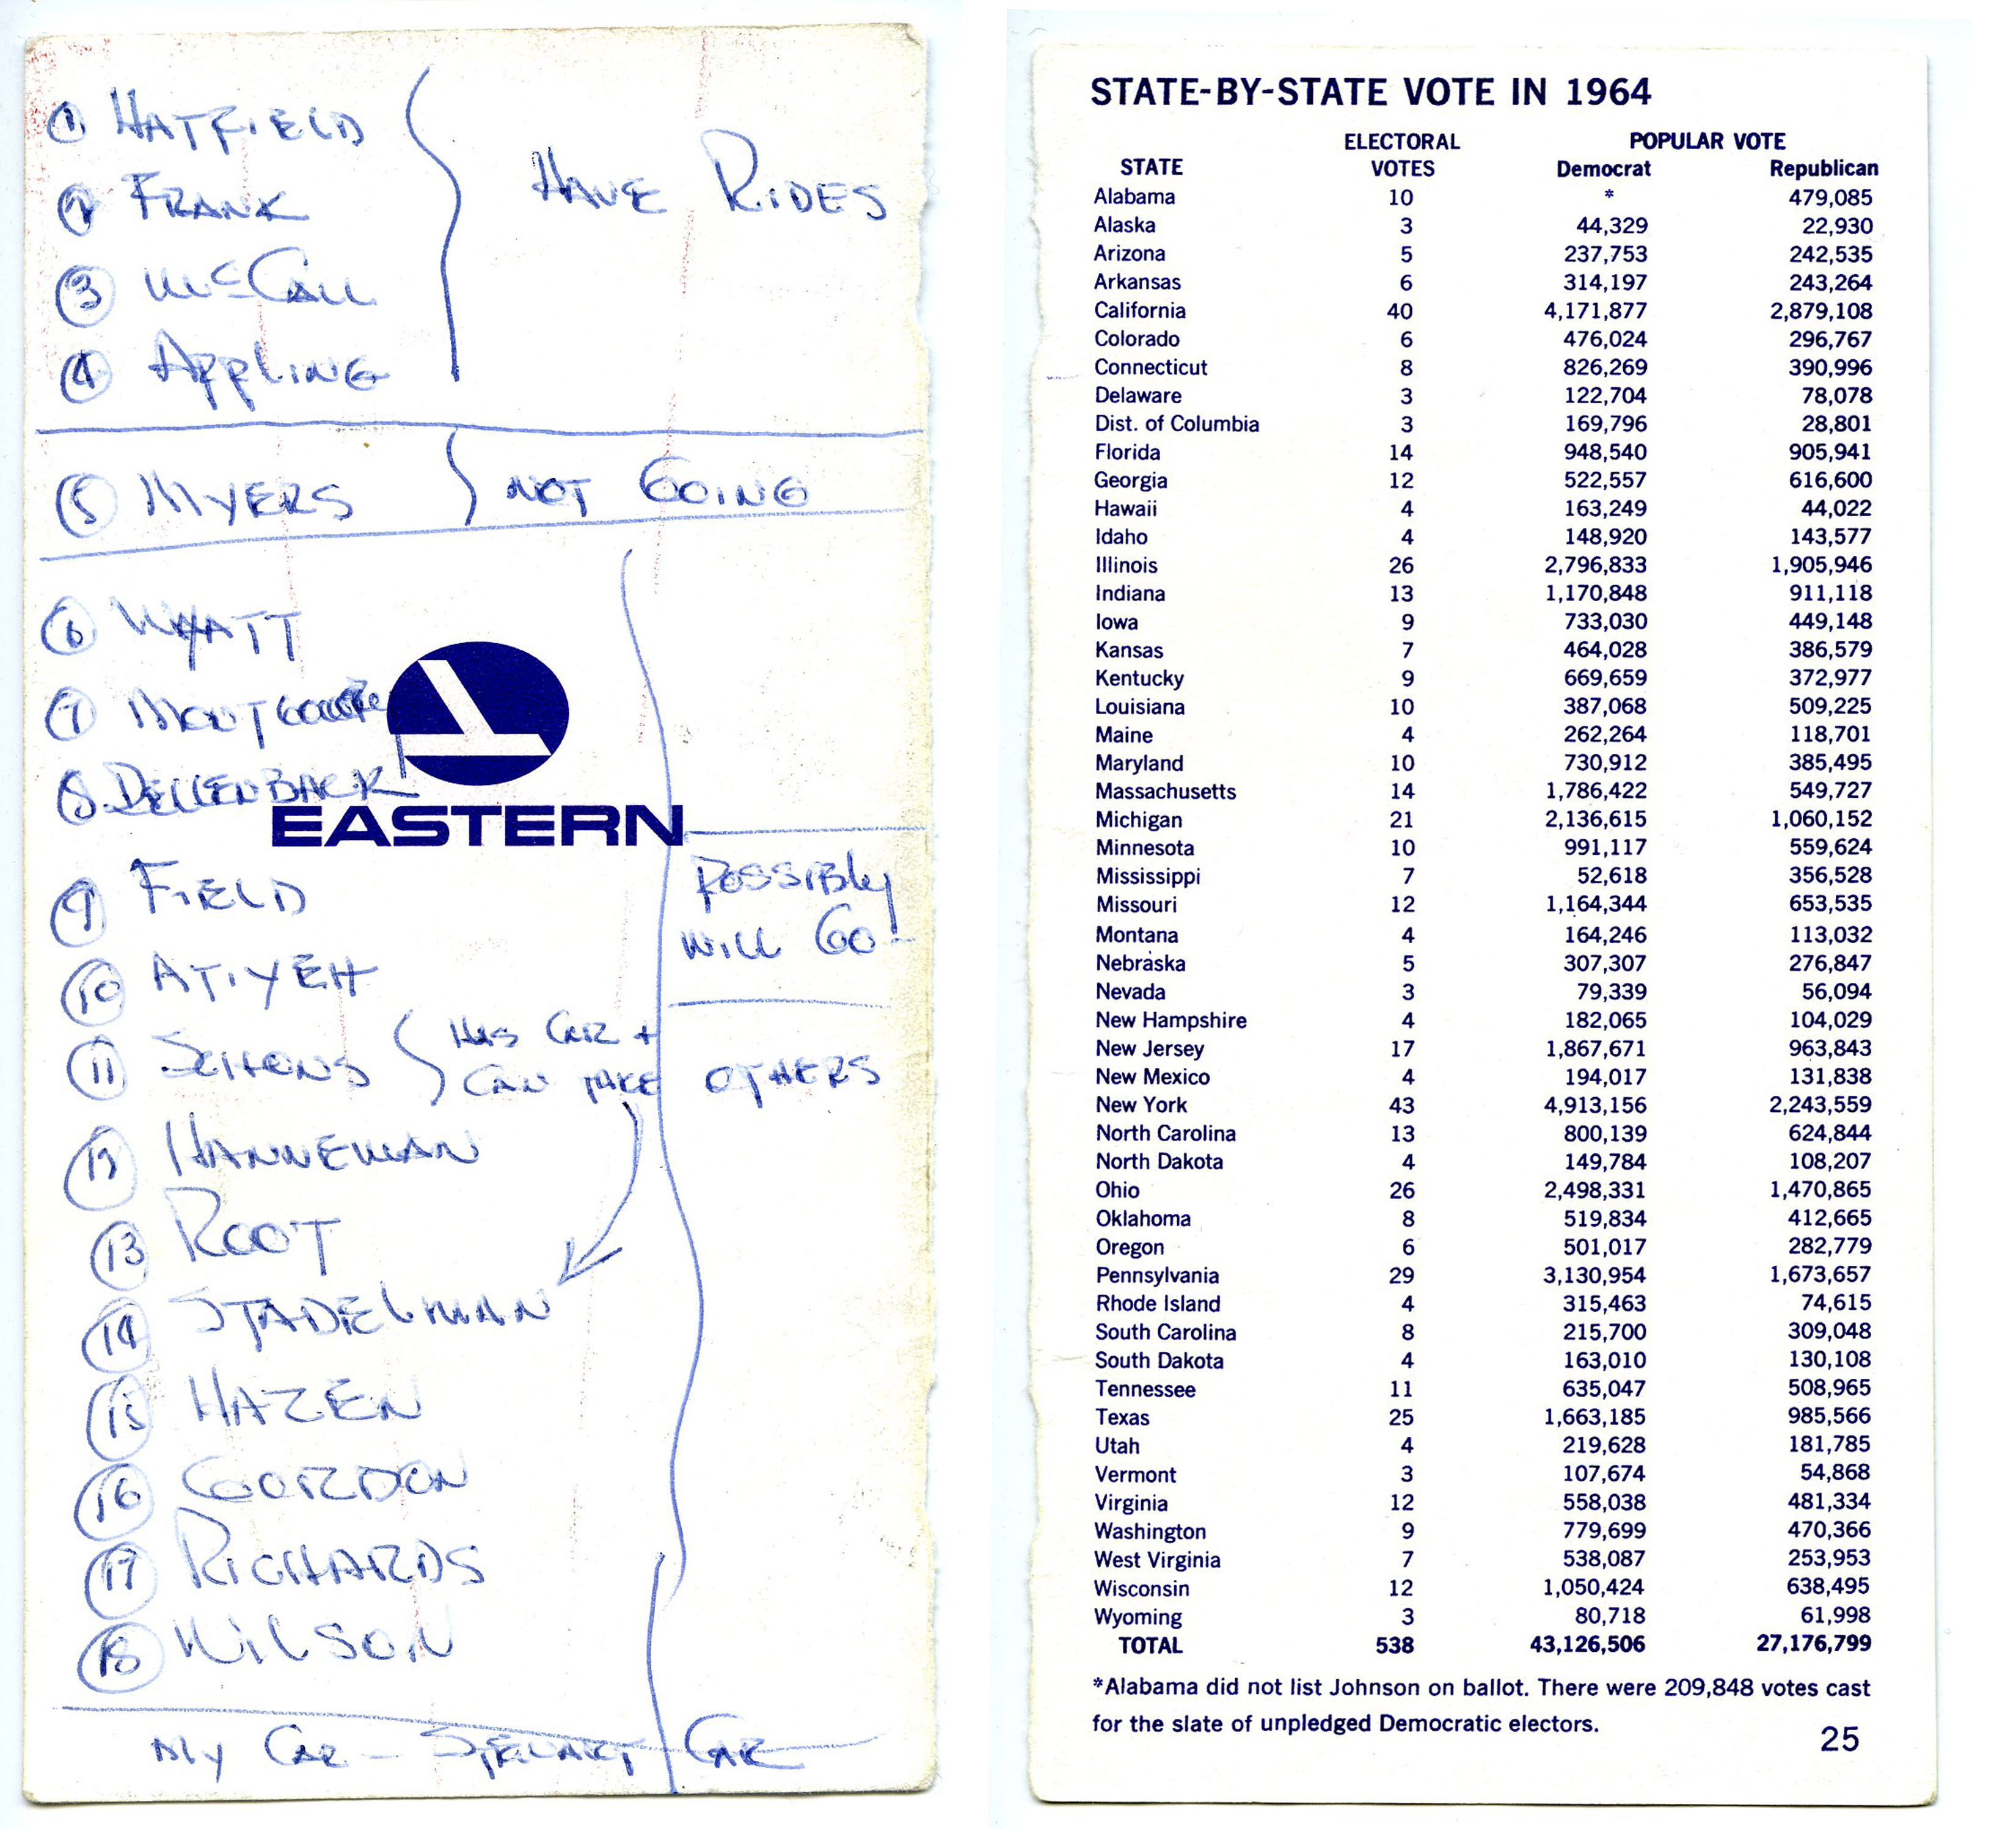 ① HATFIELD
② FRANK
③ McCALL
④ APPLING
HAVE RIDES
⑤ MYERS
NOT GOING
⑥ WYATT
⑦
⑧ DELLENBACK
EASTERN
⑨ FIELD
⑩ ATIYEH
POSSIBLY
WILL GO
⑪ SCHONS
HAS CAR +
CAN TAKE OTHERS
⑫ HANNEMAN
⑬ ROOT
⑭ STADELMAN
⑮ HAZEN
⑯ GORDON
⑰ RICHARDS
⑱ WILSON
MY CAR - STEWART CAR
STATE-BY-STATE VOTE IN 1964
ELECTORAL POPULAR VOTE
STATE VOTES Democrat Republican
Alabama 10 * 479,085
Alaska 3 44,329 22,930
Arizona 5 237,753 242,535
Arkansas 6 314,197 243,264
California 40 4,171,877 2,879,108
Colorado 6 476,024 296,767
Connecticut 8 826,269 390,996
Delaware 3 122,704 78,078
Dist. of Columbia 3 169,796 28,801
Florida 14 948,540 905,941
Georgia 12 522,557 616,600
Hawaii 4 163,249 44,022
Idaho 4 148,920 143,577
Illinois 26 2,796,833 1,905,946
Indiana 13 1,170,848 911,118
Iowa 9 733,030 449,148
Kansas 7 464,028 386,579
Kentucky 9 669,659 372,977
Louisiana 10 387,068 509,225
Maine 4 262,264 118,701
Maryland 10 730,912 385,495
Massachusetts 14 1,786,422 549,727
Michigan 21 2,136,615 1,060,152
Minnesota 10 991,117 559,624
Mississippi 7 52,618 356,528
Missouri 12 1,164,344 653,535
Montana 4 164,246 113,032
Nebraska 5 307,307 276,847
Nevada 3 79,339 56,094
New Hampshire 4 182,065 104,029
New Jersey 17 1,867,671 963,843
New Mexico 4 194,017 131,838
New York 43 4,913,156 2,243,559
North Carolina 13 800,139 624,844
North Dakota 4 149,784 108,207
Ohio 26 2,498,331 1,470,865
Oklahoma 8 519,834 412,665
Oregon 6 501,017 282,779
Pennsylvania 29 3,130,954 1,673,657
Rhode Island 4 315,463 74,615
South Carolina 8 215,700 309,048
South Dakota 4 163,010 130,108
Tennessee 11 635,047 508,965
Texas 25 1,663,185 985,566
Utah 4 219,628 181,785
Vermont 3 107,674 54,868
Virginia 12 558,038 481,334
Washington 9 779,699 470,366
West Virginia 7 538,087 253,953
Wisconsin 12 1,050,424 638,495
Wyoming 3 80,718 61,998
TOTAL 538 43,126,506 27,176,799
*Alabama did not list Johnson on ballot. There were 209,848 votes cast
for the slate of unpledged Democratic electors.
25